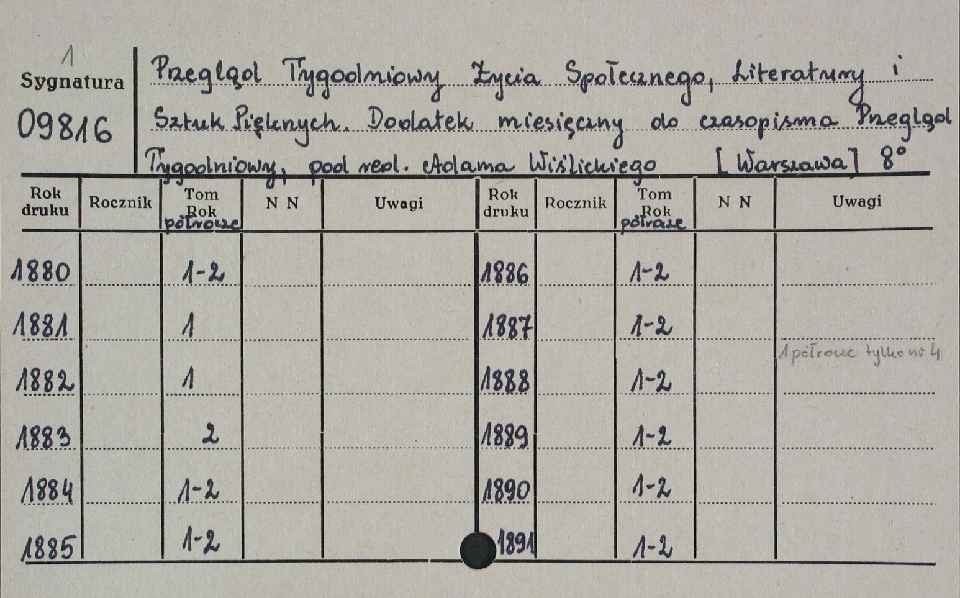 1
Sygnatura
09816
Przegląd Tygodniowy Życia Społecznego, Literatury i
Sztuk Pięknych. Dodatek miesięczny do czasopisma Przegląd
Tygodniowy, pod red. Adama Wiślickiego [Warszawa] 8°
Rok druku Rocznik Tom Rok półrocze N N Uwagi Rok druku Rocznik Tom Rok półrocze N N Uwagi
1880 1-2 1886 1-2
1881 1 1887 1-2
1 półrocze tylko nr 4
1882 1 1888 1-2
1883 2 1889 1-2
1884 1-2 1890 1-2
1885 1-2 1891 1-2